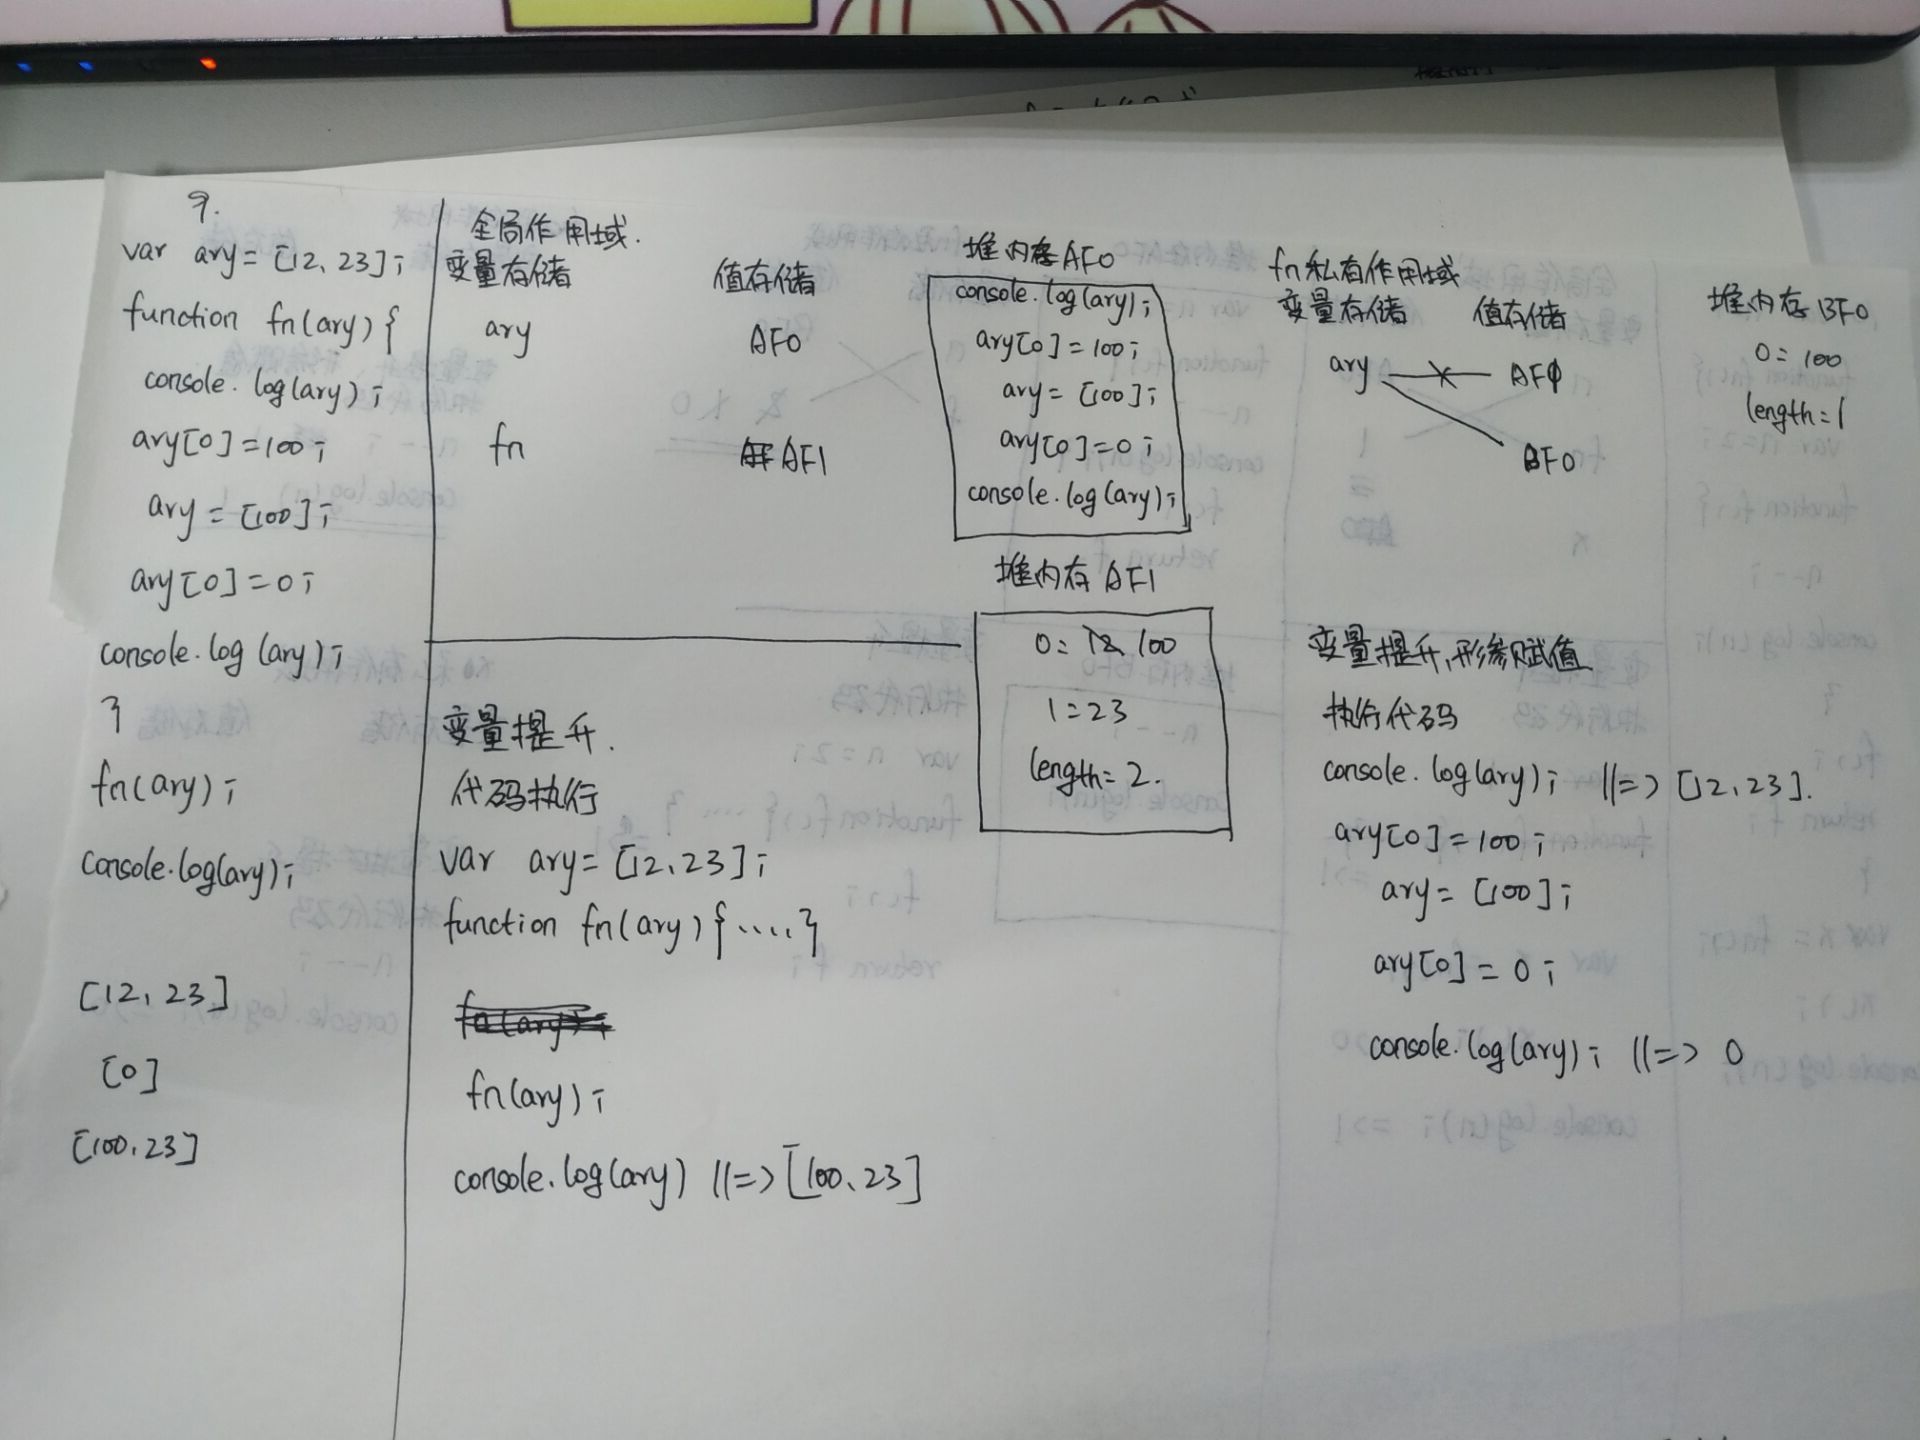 9.
var ary = [12, 23];
function fn(ary) {
console.log(ary);
ary[0] = 100;
ary = [100];
ary[0] = 0;
console.log(ary);
}
fn(ary);
console.log(ary);
[12, 23]
[0]
[100, 23]
全局作用域.
变量存储 值存储
ary AF0
fn AF1
变量提升.
代码执行
var ary = [12, 23];
function fn(ary) {.....}
fn(ary);
console.log(ary) //=> [100, 23]
堆内存 AF0
console.log(ary);
ary[0] = 100;
ary = [100];
ary[0] = 0;
console.log(ary);
堆内存 AF1
0: 12 100
1 = 23
length = 2.
fn 私有作用域
变量存储 值存储
ary AF0
BF0
堆内存 BF0
0 = 100
length = 1
变量提升,形参赋值
执行代码
console.log(ary); //=> [12, 23].
ary[0] = 100;
ary = [100];
ary[0] = 0;
console.log(ary); //=> 0